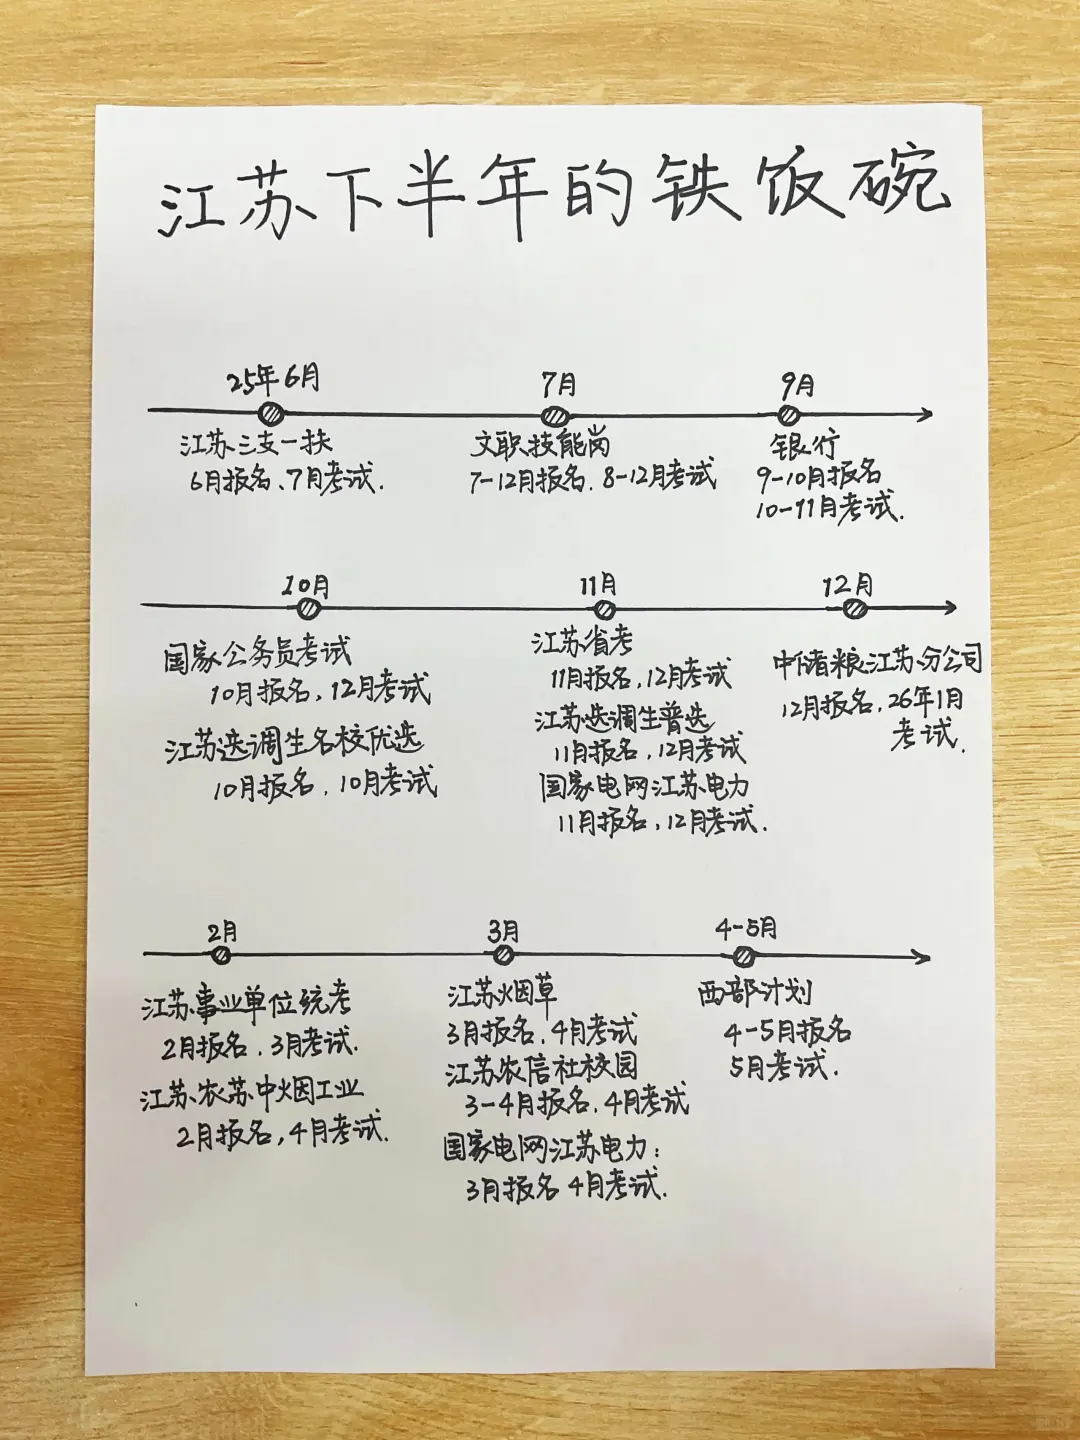 江苏下半年的铁饭碗
25年6月
江苏三支一扶
6月报名、7月考试.
7月
文职技能岗
7-12月报名. 8-12月考试
9月
银行
9-10月报名
10-11月考试.
10月
国家公务员考试
10月报名, 12月考试
江苏选调生名校优选
10月报名, 10月考试
11月
江苏省考
11月报名, 12月考试
江苏选调生普选
11月报名, 12月考试
国家电网江苏电力
11月报名, 12月考试.
12月
中储粮江苏分公司
12月报名, 26年1月
考试.
2月
江苏事业单位统考
2月报名. 3月考试.
江苏农苏中烟工业
2月报名, 4月考试.
3月
江苏烟草
3月报名, 4月考试
江苏农信社校园
3-4月报名. 4月考试
国家电网江苏电力:
3月报名 4月考试.
4-5月
西部计划
4-5月报名
5月考试.